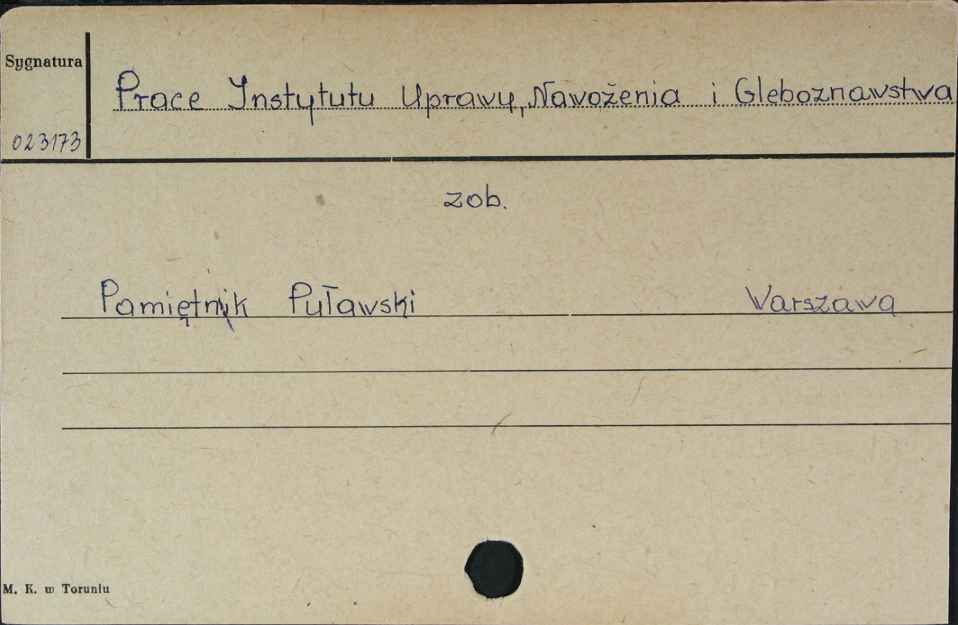 Sygnatura
Prace Instytutu Uprawy, Nawożenia i Gleboznawstwa
023173
zob.
Pamiętnik Puławski Warszawa
M. K. w Toruniu